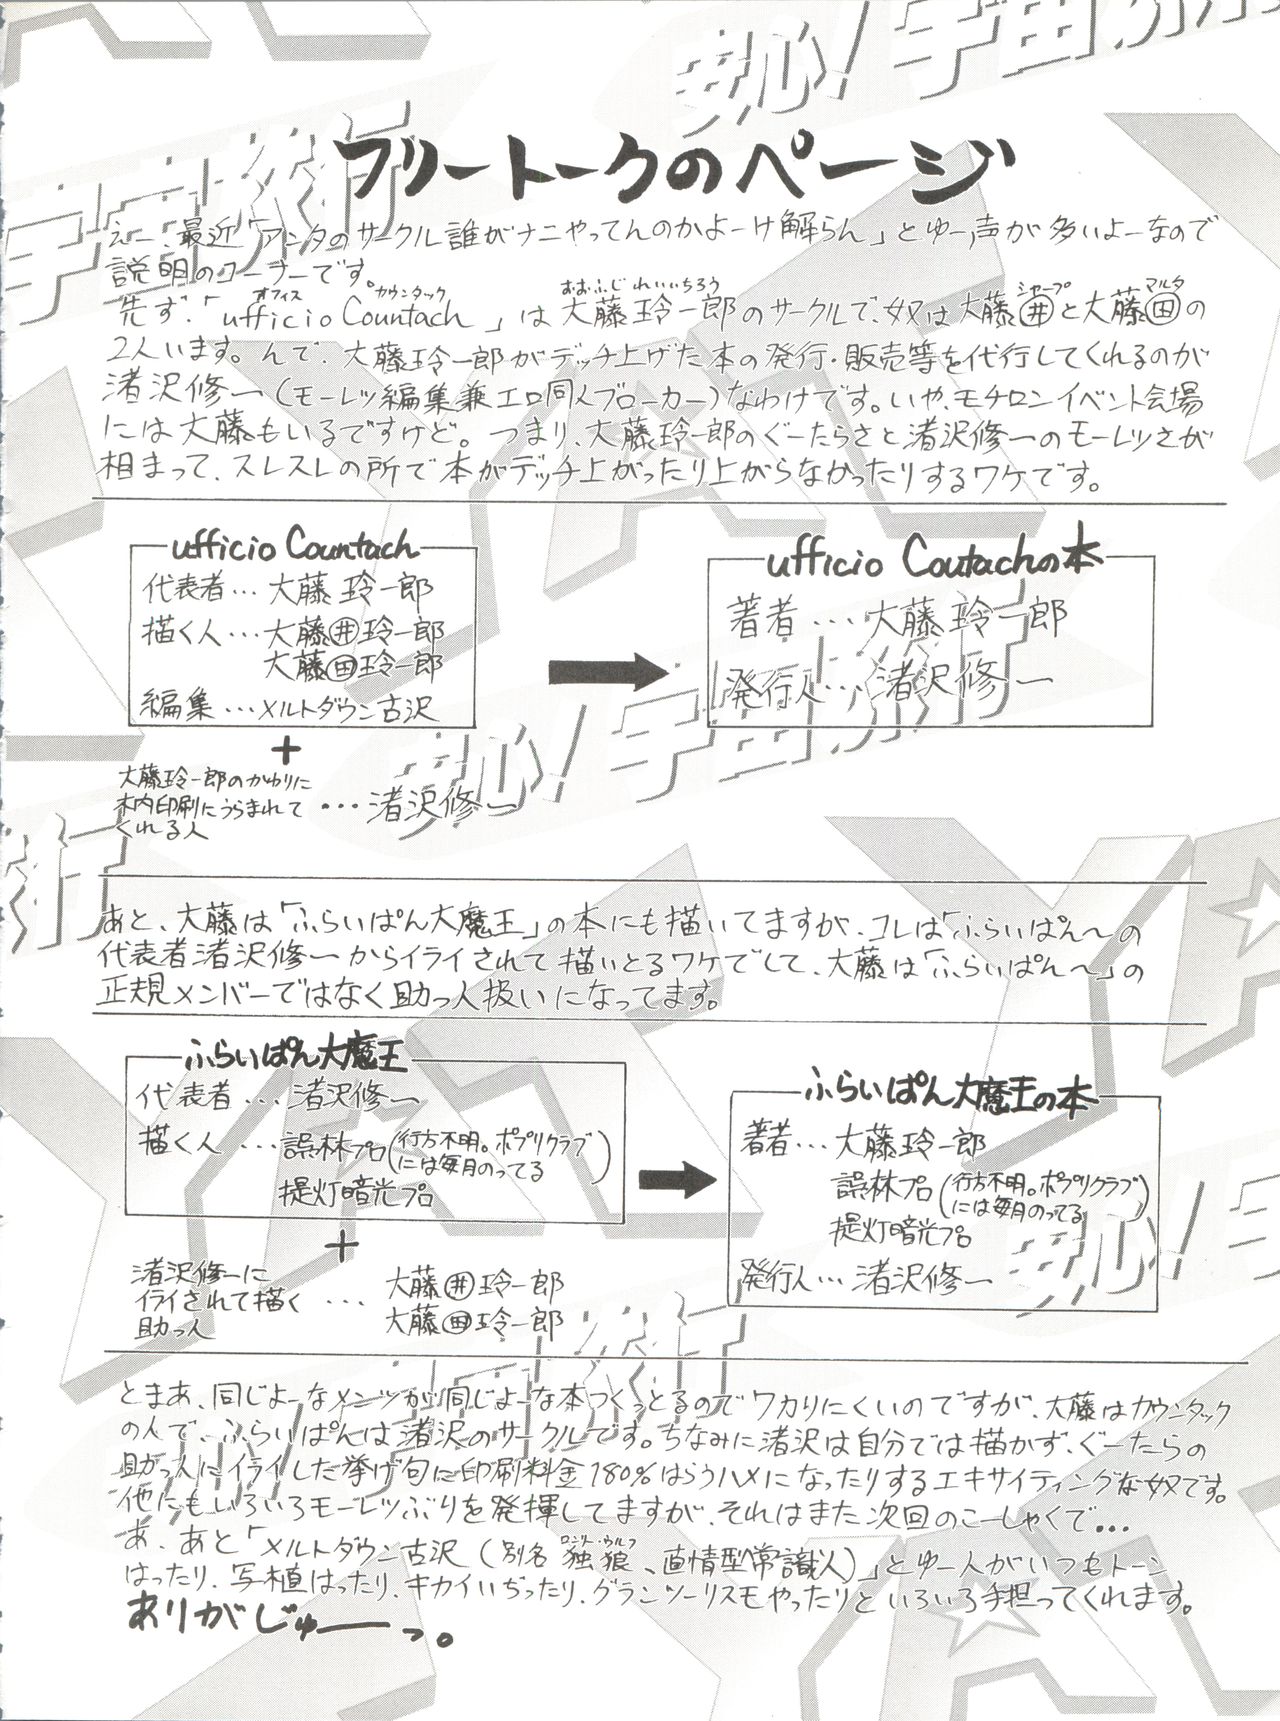 フリートークのページ
えー、最近「アンタのサークル誰がナニやってんのかよーけ解らん」とゆー声が多いよーなので
説明のコーナーです。
オフィス カウンタック おおふじ れいいちろう シャープ マルタ
先ず、「ufficio Countach」は大藤玲一郎のサークルで、奴は大藤㊉と大藤㊉の
2人います。んで、大藤玲一郎がデッチ上げた本の発行・販売等を代行してくれるのが
渚沢修一(モーレツ編集兼エロ同人ブローカー)なわけです。いや、モチロンイベント会場
には大藤もいるですけど。つまり、大藤玲一郎のぐーたらさと渚沢修一のモーレツさが
相まって、スレスレの所で本がデッチ上がったり上がらなかったりするワケです。
ufficio Countach
代表者…大藤玲一郎
描く人…大藤井玲一郎
大藤田玲一郎
編集…メルトダウン古沢
+
大藤玲一郎のかわりに
木内印刷にうらまれて
くれる人
…渚沢修一
ufficio Coutachの本
著者…大藤玲一郎
発行人…渚沢修一
あと、大藤は「ふらいぱん大魔王」の本にも描いてますが、コレは「ふらいぱん〜の
代表者渚沢修一からイライされて描いとるワケでして、大藤は「ふらいぱん〜」の
正規メンバーではなく助っ人扱いになってます。
ふらいぱん大魔王
代表者…渚沢修一
描く人…誤林プロ(行方不明。ポプリクラブ
には毎月のってる)
提灯暗光プロ
+
渚沢修一に
イライされて描く
助っ人
…大藤井玲一郎
大藤田玲一郎
ふらいぱん大魔王の本
著者…大藤玲一郎
誤林プロ(行方不明。ポプリクラブ
には毎月のってる)
提灯暗光プロ
発行人…渚沢修一
とまあ、同じよーなメンツが同じよーな本つくっとるのでワカりにくいのですが、大藤はカウンタック
の人で、ふらいぱんは渚沢のサークルです。ちなみに渚沢は自分では描かず、ぐーたらの
助っ人にイライした挙げ句に印刷料金180%はらうハメになったりするエキサイティングな奴です。
他にもいろいろモーレツぶりを発揮してますが、それはまた次回のこーしゃくで…
ロンリー・ウルフ
あ、あと「メルトダウン古沢(別名 独狼、直情型常識人)」とゆー人がいつもトーン
はったり、写植はったり、キカイいぢったり、グランツーリスモやったりといろいろ手担ってくれます。
ありがじゅーっ。
安心!宇宙旅行
YAT